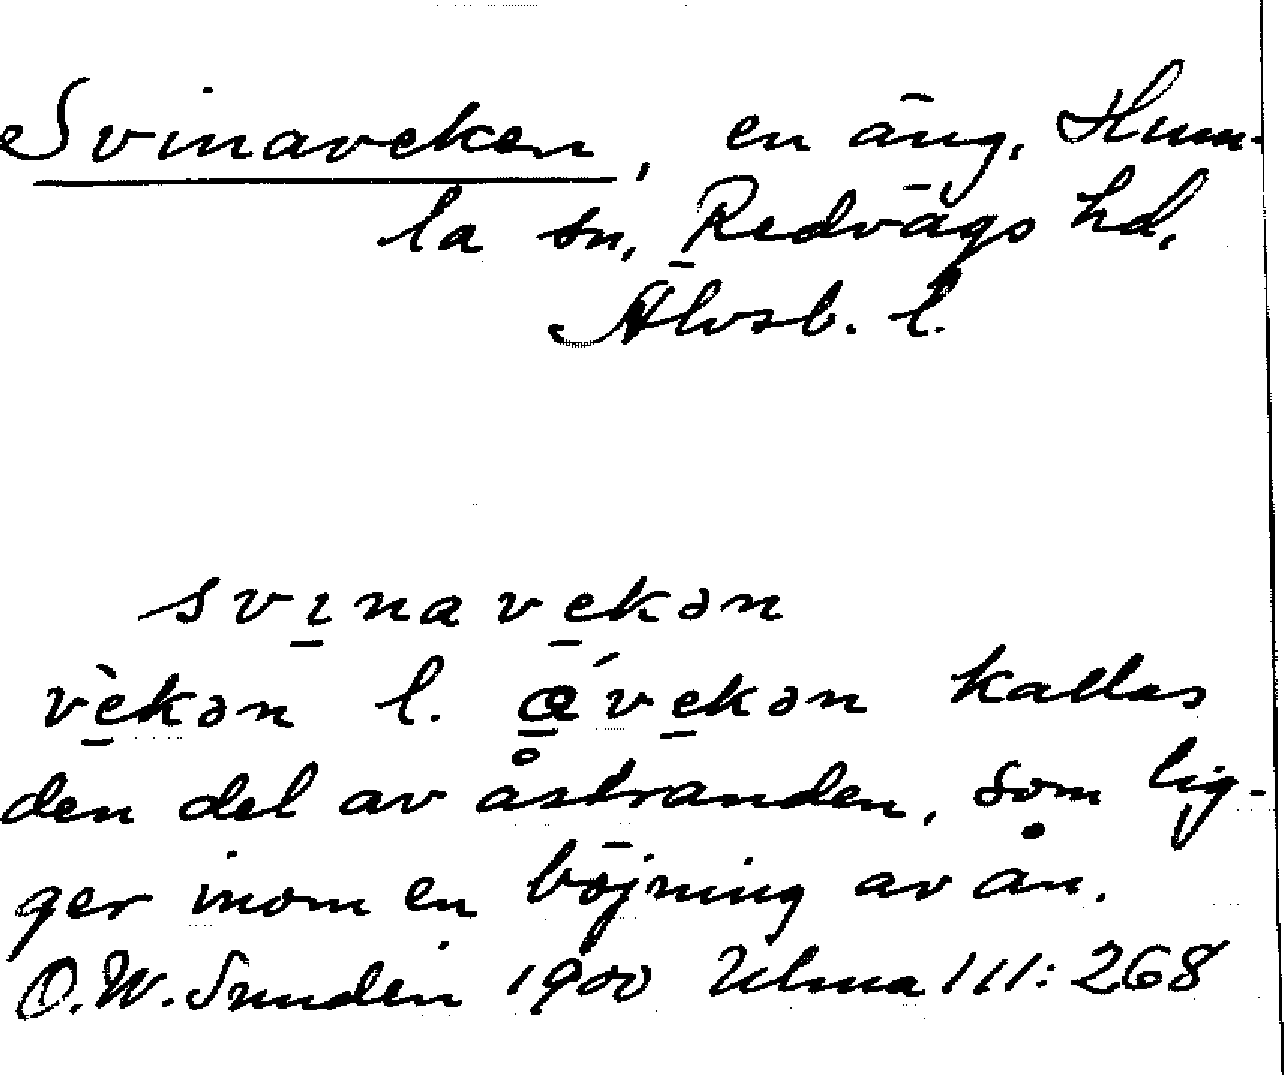 Svinaveken, en äng, Hum-
la sn, Redvägs hd,
Älvsb. l.
svi̱nave̱kən
vè̱kən l. á̱ve̱kən kallas
den del av åstranden, som lig-
ger inom en böjning av ån.
O.W. Sundén 1900 Ulma 111:268